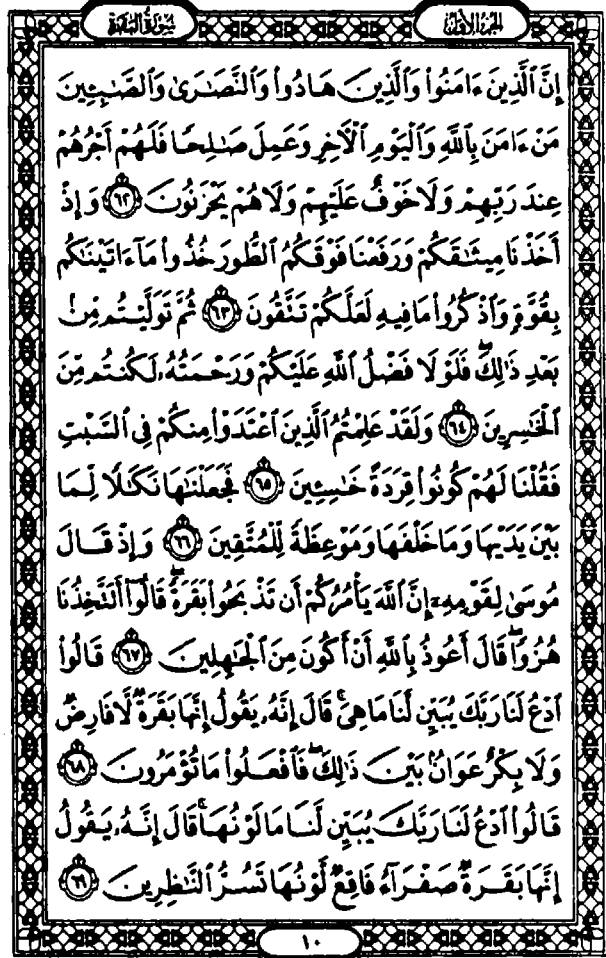 الجزء الأول سورة البقرة
إِنَّ ٱلَّذِينَ ءَامَنُوا۟ وَٱلَّذِينَ هَادُوا۟ وَٱلنَّصَـٰرَىٰ وَٱلصَّـٰبِـِٔينَ
مَنْ ءَامَنَ بِٱللَّهِ وَٱلْيَوْمِ ٱلْـَٔاخِرِ وَعَمِلَ صَـٰلِحًا فَلَهُمْ أَجْرُهُمْ
عِندَ رَبِّهِمْ وَلَا خَوْفٌ عَلَيْهِمْ وَلَا هُمْ يَحْزَنُونَ ٦٢ وَإِذْ
أَخَذْنَا مِيثَـٰقَكُمْ وَرَفَعْنَا فَوْقَكُمُ ٱلطُّورَ خُذُوا۟ مَآ ءَاتَيْنَـٰكُم
بِقُوَّةٍ وَٱذْكُرُوا۟ مَا فِيهِ لَعَلَّكُمْ تَتَّقُونَ ٦٣ ثُمَّ تَوَلَّيْتُم مِّنۢ
بَعْدِ ذَٰلِكَ ۖ فَلَوْلَا فَضْلُ ٱللَّهِ عَلَيْكُمْ وَرَحْمَتُهُۥ لَكُنتُم مِّنَ
ٱلْخَـٰسِرِينَ ٦٤ وَلَقَدْ عَلِمْتُمُ ٱلَّذِينَ ٱعْتَدَوْا۟ مِنكُمْ فِى ٱلسَّبْتِ
فَقُلْنَا لَهُمْ كُونُوا۟ قِرَدَةً خَـٰسِـِٔينَ ٦٥ فَجَعَلْنَـٰهَا نَكَـٰلًا لِّمَا
بَيْنَ يَدَيْهَا وَمَا خَلْفَهَا وَمَوْعِظَةً لِّلْمُتَّقِينَ ٦٦ وَإِذْ قَالَ
مُوسَىٰ لِقَوْمِهِۦٓ إِنَّ ٱللَّهَ يَأْمُرُكُمْ أَن تَذْبَحُوا۟ بَقَرَةً ۖ قَالُوٓا۟ أَتَتَّخِذُنَا
هُزُوًا ۖ قَالَ أَعُوذُ بِٱللَّهِ أَنْ أَكُونَ مِنَ ٱلْجَـٰهِلِينَ ٦٧ قَالُوا۟
ٱدْعُ لَنَا رَبَّكَ يُبَيِّن لَّنَا مَا هِىَ ۚ قَالَ إِنَّهُۥ يَقُولُ إِنَّهَا بَقَرَةٌ لَّا فَارِضٌ
وَلَا بِكْرٌ عَوَانٌۢ بَيْنَ ذَٰلِكَ ۖ فَٱفْعَلُوا۟ مَا تُؤْمَرُونَ ٦٨
قَالُوا۟ ٱدْعُ لَنَا رَبَّكَ يُبَيِّن لَّنَا مَا لَوْنُهَا ۚ قَالَ إِنَّهُۥ يَقُولُ
إِنَّهَا بَقَرَةٌ صَفْرَآءُ فَاقِعٌ لَّوْنُهَا تَسُرُّ ٱلنَّـٰظِرِينَ ٦٩
١٠